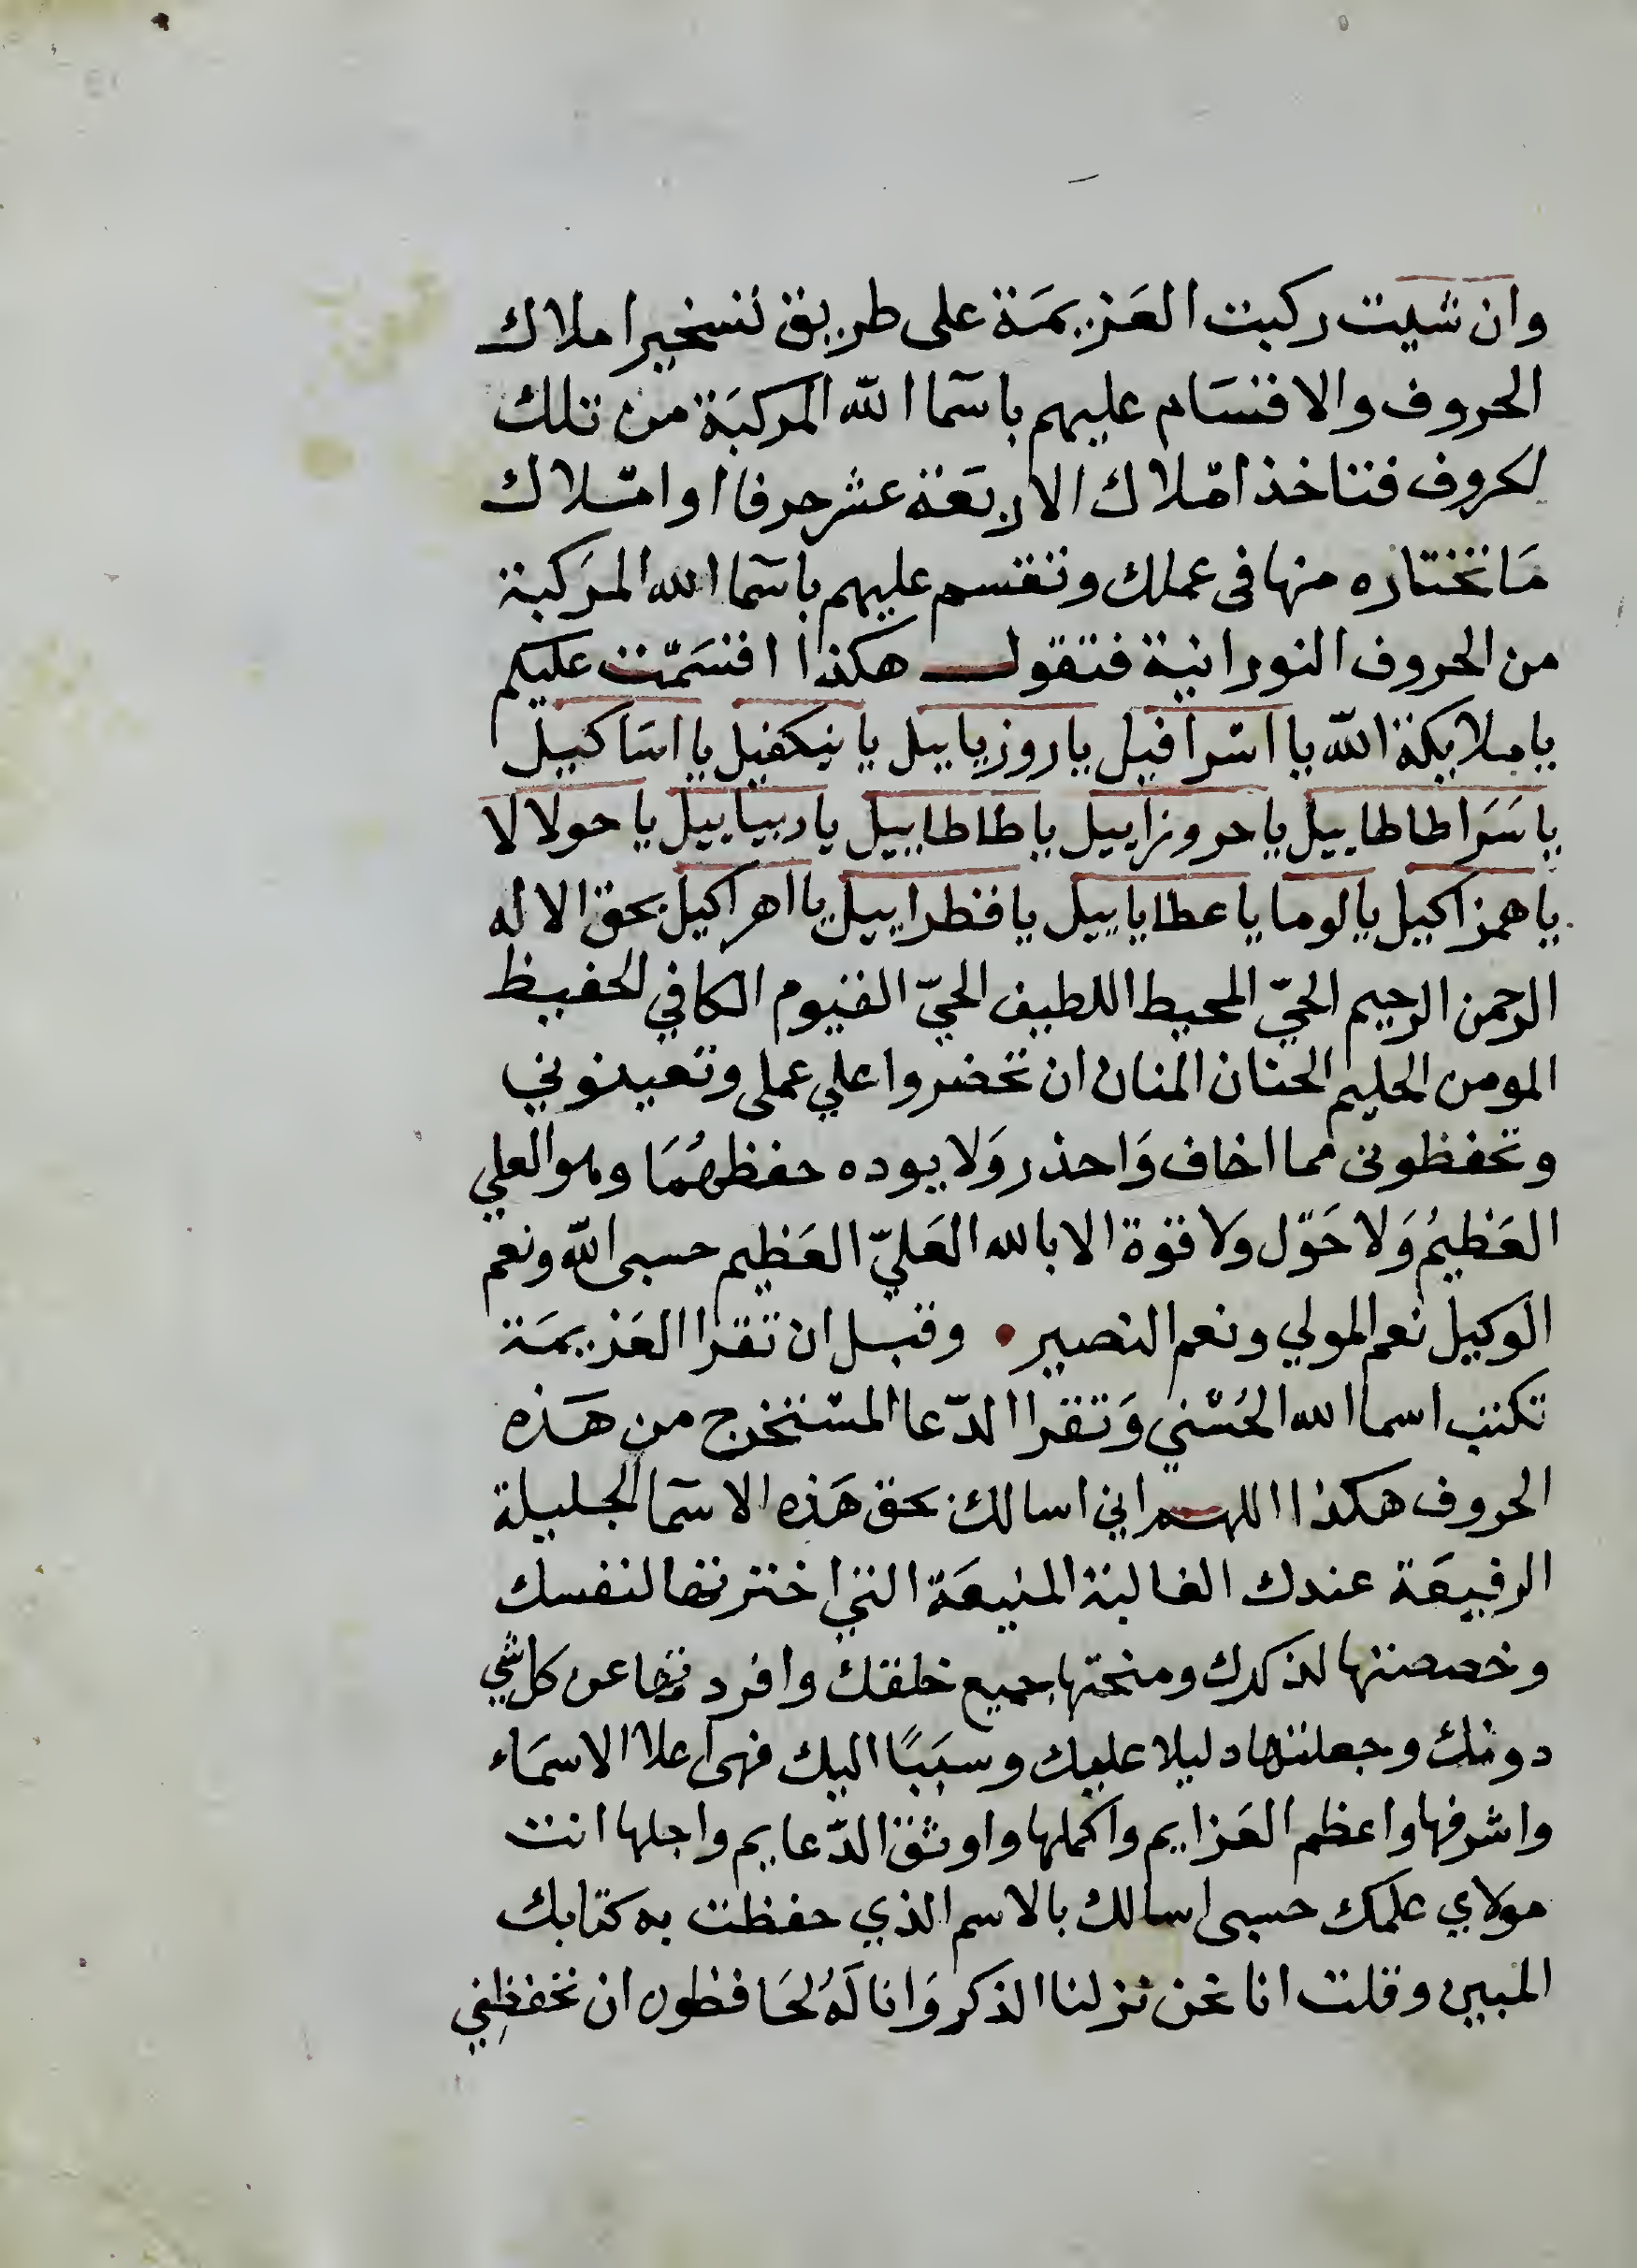 وان شيت ركبت العَزيمَة على طريق تسخير املاك
الحروف والاقسَام عليهم باسمآ الله المركبَة من تلك
لحروف فتاخذ امْلاك الاربعَة عشر حرفا او امْلاك
مَا تختاره منها فى عملك وتقسم عليهم باسمآ الله المرَكبة
من الحروف النورانية فتقول هكذا اقسَمْت عليكم
يا ملايكة الله يا اسْرافيل يا روزياييل يا ينكفيل يا اسَاكييل
يا سَرَاطاطاييل يا حروزاييل يا طاطاييل يا ربياييل يا حولالا
يا همزاكيل يا لوما يا عطاياييل يا فطراييل يا اهراكيل بحق الاله
الرحمن الرحيم الحيّ المحيط اللطيف الحيّ القيوم الكافي لحفيظ
المومن الحليم الحنان المنان ان تحضروا علي عملى وتعينوني
وتحفظونى مما اخاف وَاحذر وَلا يوده حفظهُمَا وهو العلي
العَظيمُ وَلا حَوْل وَلا قوة الا بالله العَليّ العَظيم حسبى الله ونعم
الوكيل نعم المولي ونعم النصير • وقبل ان تقرا العَزيمَة
تكتب اسما الله الحُسْني وَتقرا الدّعا المسْتخرج من هَذه
الحروف هكذا اللهم اني اسالك بحق هَذه الاسمآ الجليلة
الرفيعَة عندك الغالبة المنيعَة التي اخترتها لنفسك
وخصصتها لذكرك ومنحتها جميع خلقك وافردتها عن كل شي
دونك وجعلتها دليلا عليك وسبَبًا اليك فهى اعلا الاسمَاء
واشرفها واعظم العَزايم واكملها واوثق الدّعايم واجلها انت
مولاي علمك حسبى اسالك بالاسم الذي حفظت به كتابك
المبين وقلت انا نحن نزلنا الذكر وَانا لَهُ لحَافظون ان تحفظِني